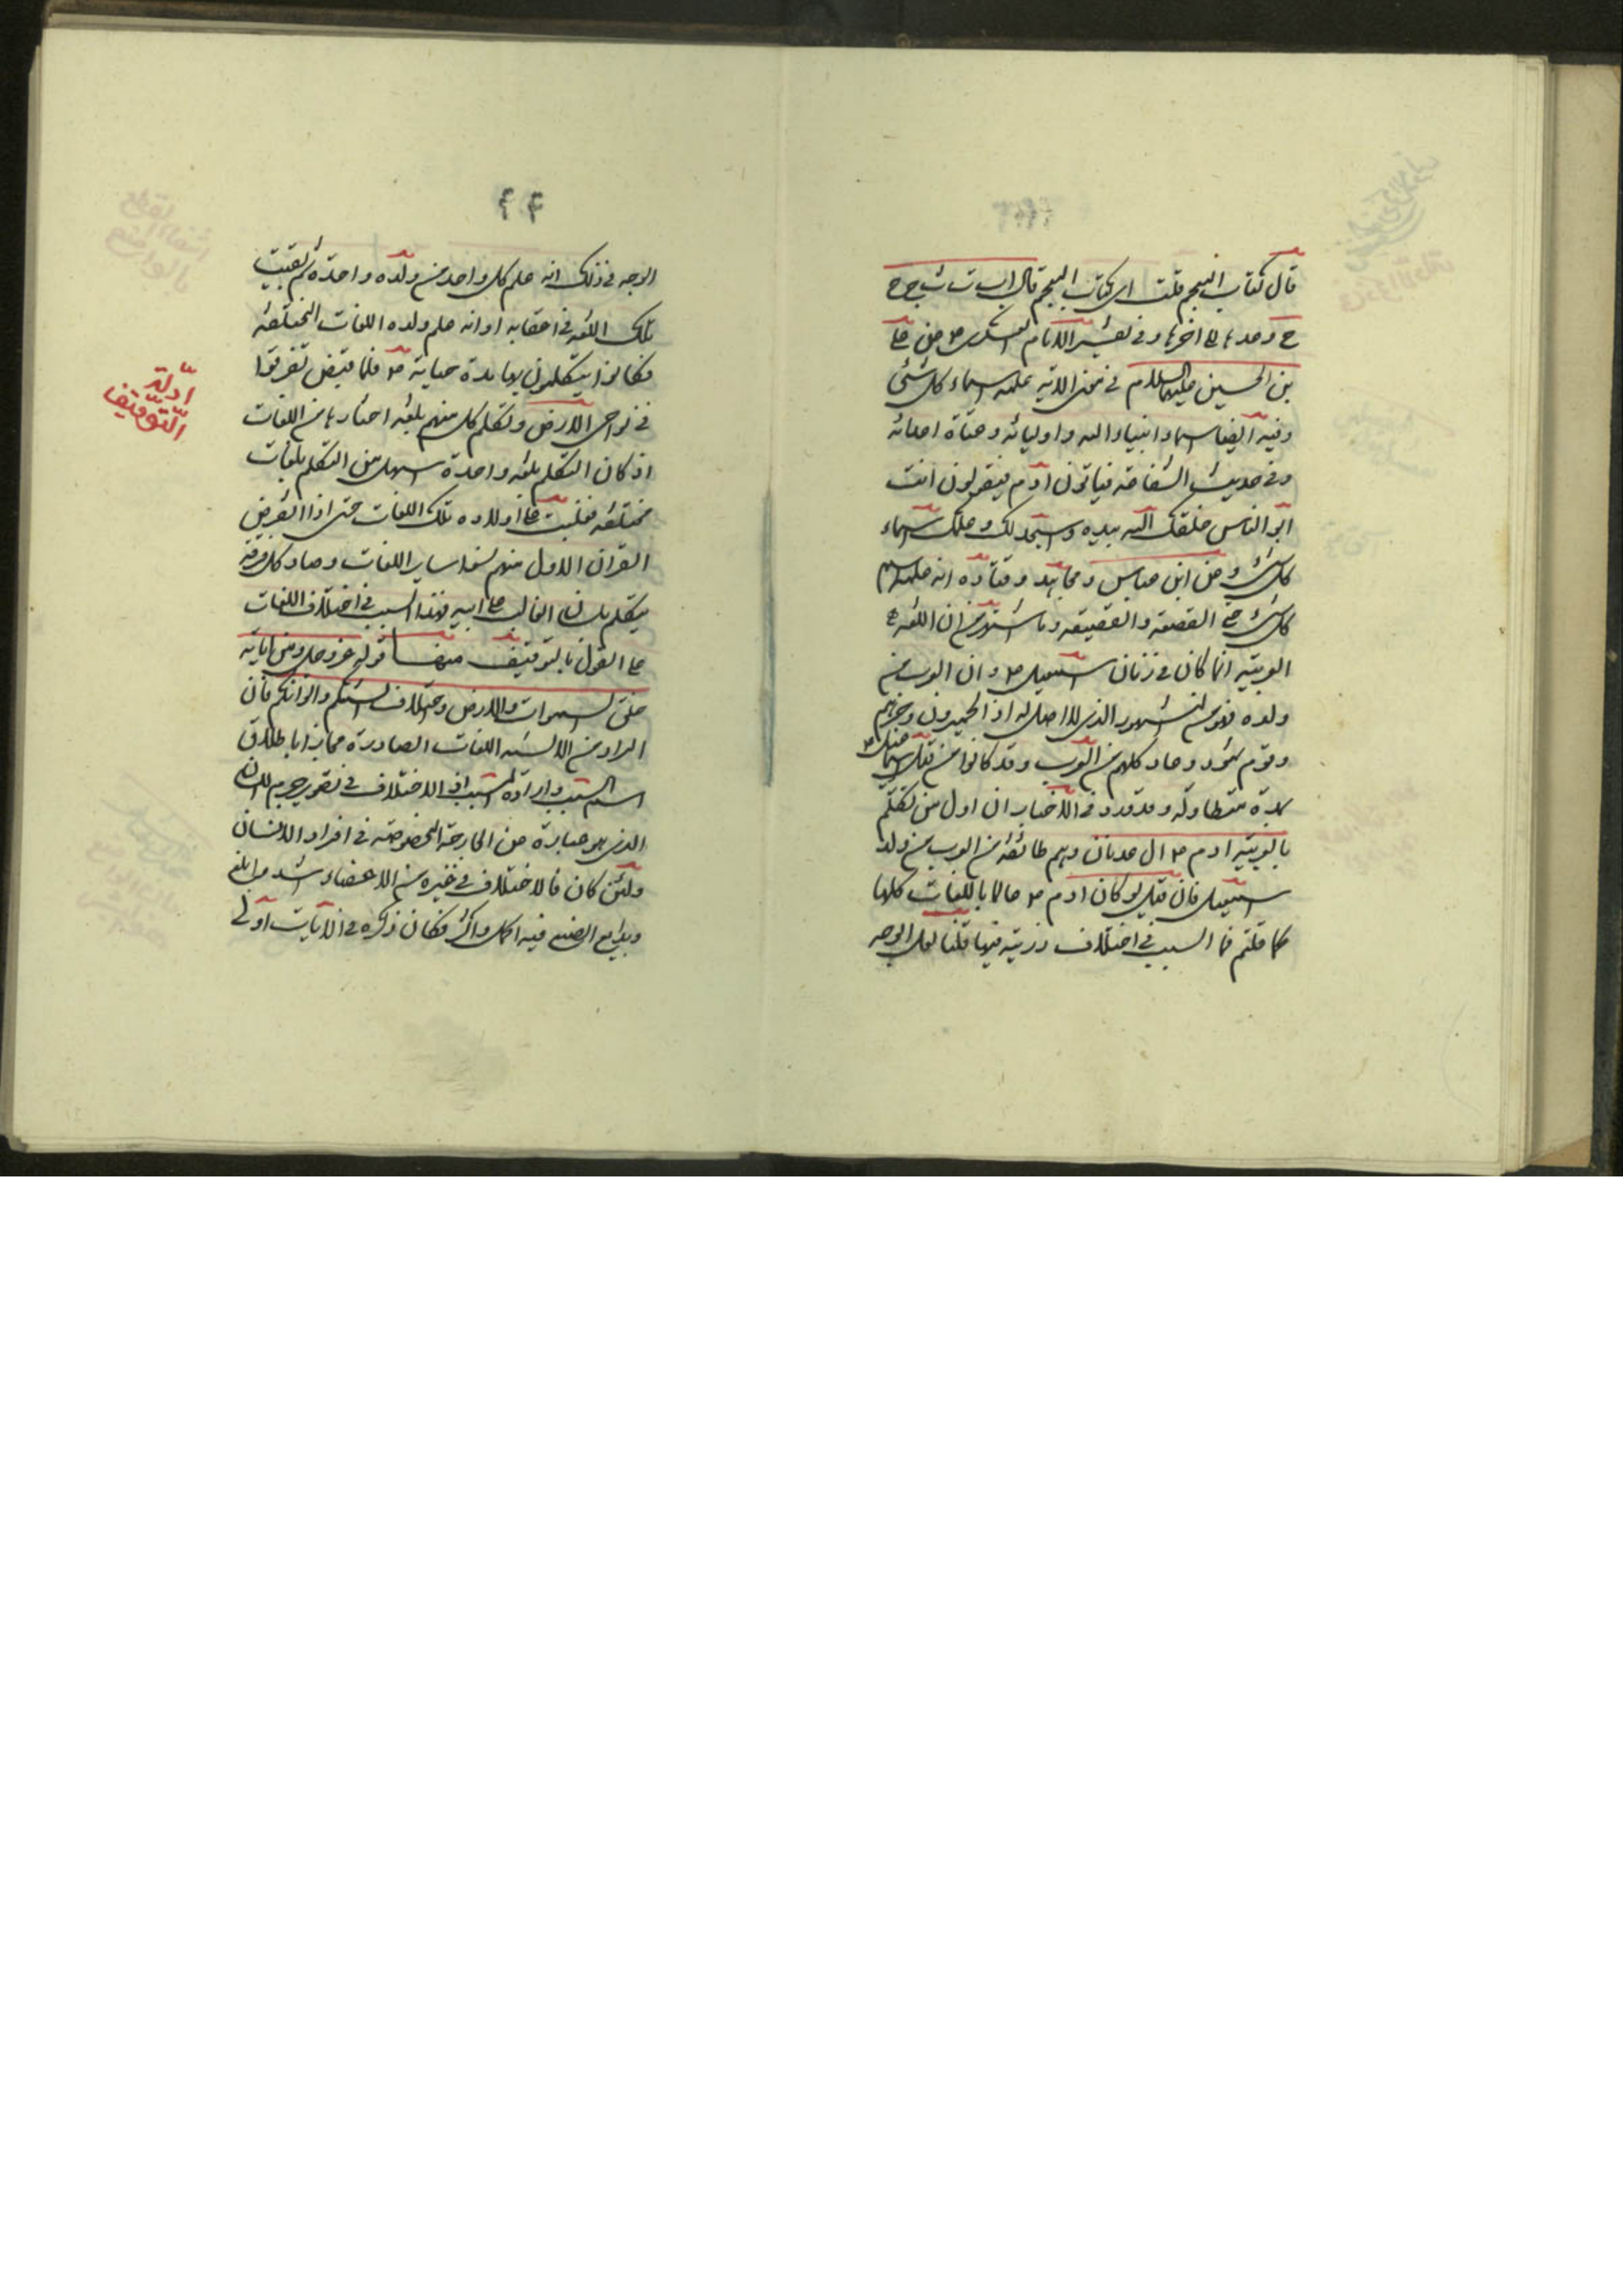 قال كتاب المعجم قلت اى كتاب المعجم قال ا ب ت ث ج ح
خ وعدها الى اخرها وفى تفسير الامام العسكرى ع عن على
بن الحسين عليهما السلام فى نحن الاية علمه اسماء كل شئ
وفيه ايضا اسماء انبياء الله واوليائه وعتاة اعدائه
وفى حديث الشفاعة فياتون ادم فيقولون انت
ابو الناس خلقك الله بيده واسجد لك وعلمك اسماء
كل شئ وعن ابن عباس ومجاهد وقتادة انه علمه اسم
كل شئ حتى القصعة والقصيعة وما اشتهر من ان اللغة
العربية انما كان فى زمان اسمعيل ع وان العرب من
ولده فهو من المشهور الذى لا اصل له اذ الحميرون وجرهم
وقوم ثمود وعاد كلهم من العرب وقد كانوا من قبل اسمعيل ع
بمدة متطاولة وقد ورد فى الاخبار ان اول من تكلم
بالعربية ادم ع ال عدنان وهم طائفة من العرب من ولد
اسمعيل فان قيل لو كان ادم ع عالما باللغات كلها
كما قلتم فما السبب فى اختلاف ذريته فيها قلنا لعل الوجه
۴۴
الوجه فى ذلك انه علم كل واحد من ولده واحدة ثم بقيت
تلك اللغة فى اعقابه او انه علم ولده اللغات المختلفة
فكانوا يتكلمون بها مدة حياته ع فلما قبض تفرقوا
فى نواحى الارض وتكلم كل منهم بلغة اختارها من اللغات
اذ كان التكلم بلغة واحدة اسهل من التكلم بلغات
مختلفة فغلبت على اولاده تلك اللغات حتى اذا انقرض
القران الاول منهم نسوا ساير اللغات وصار كل فرقة
يتكلم بلسان الغالب على ابيه فهذا السبب فى اختلاف اللغات
على القول بالتوقيف منها قوله عز وجل ومن اياته
خلق السموات والارض واختلاف السنتكم والوانكم فان
المراد من الالسنة اللغات الصادرة مجازا باطلاق
اسم السبب وارادة المسبب اذ الاختلاف فى تصوير جرم اللسان
الذى هو عبارة عن الجارحة المخصوصة فى افراد الانسان
ولئن كان فالاختلاف فى غيره من الاعضاء اشد وابلغ
وبدايع الصنع فيه اكمل واكثر فكان ذكره فى الايات اولى
ادلة
التوقيف